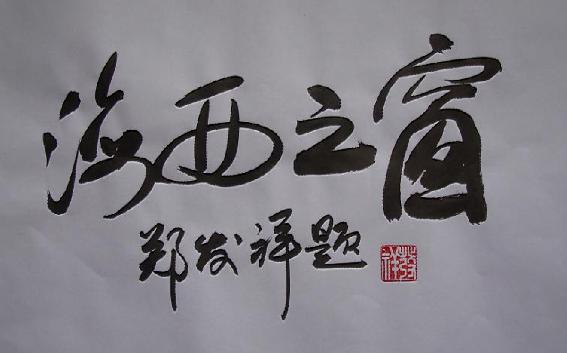 海西之窗
郑发祥题
發祥